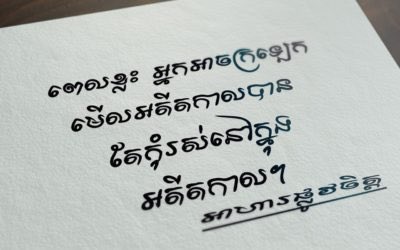 ពេលខ្លះ អ្នកអាចក្រឡេក
មើលអតីតកាលបាន
តែកុំរស់នៅក្នុង
អតីតកាលៗ
អាហារផ្លូវចិត្ត